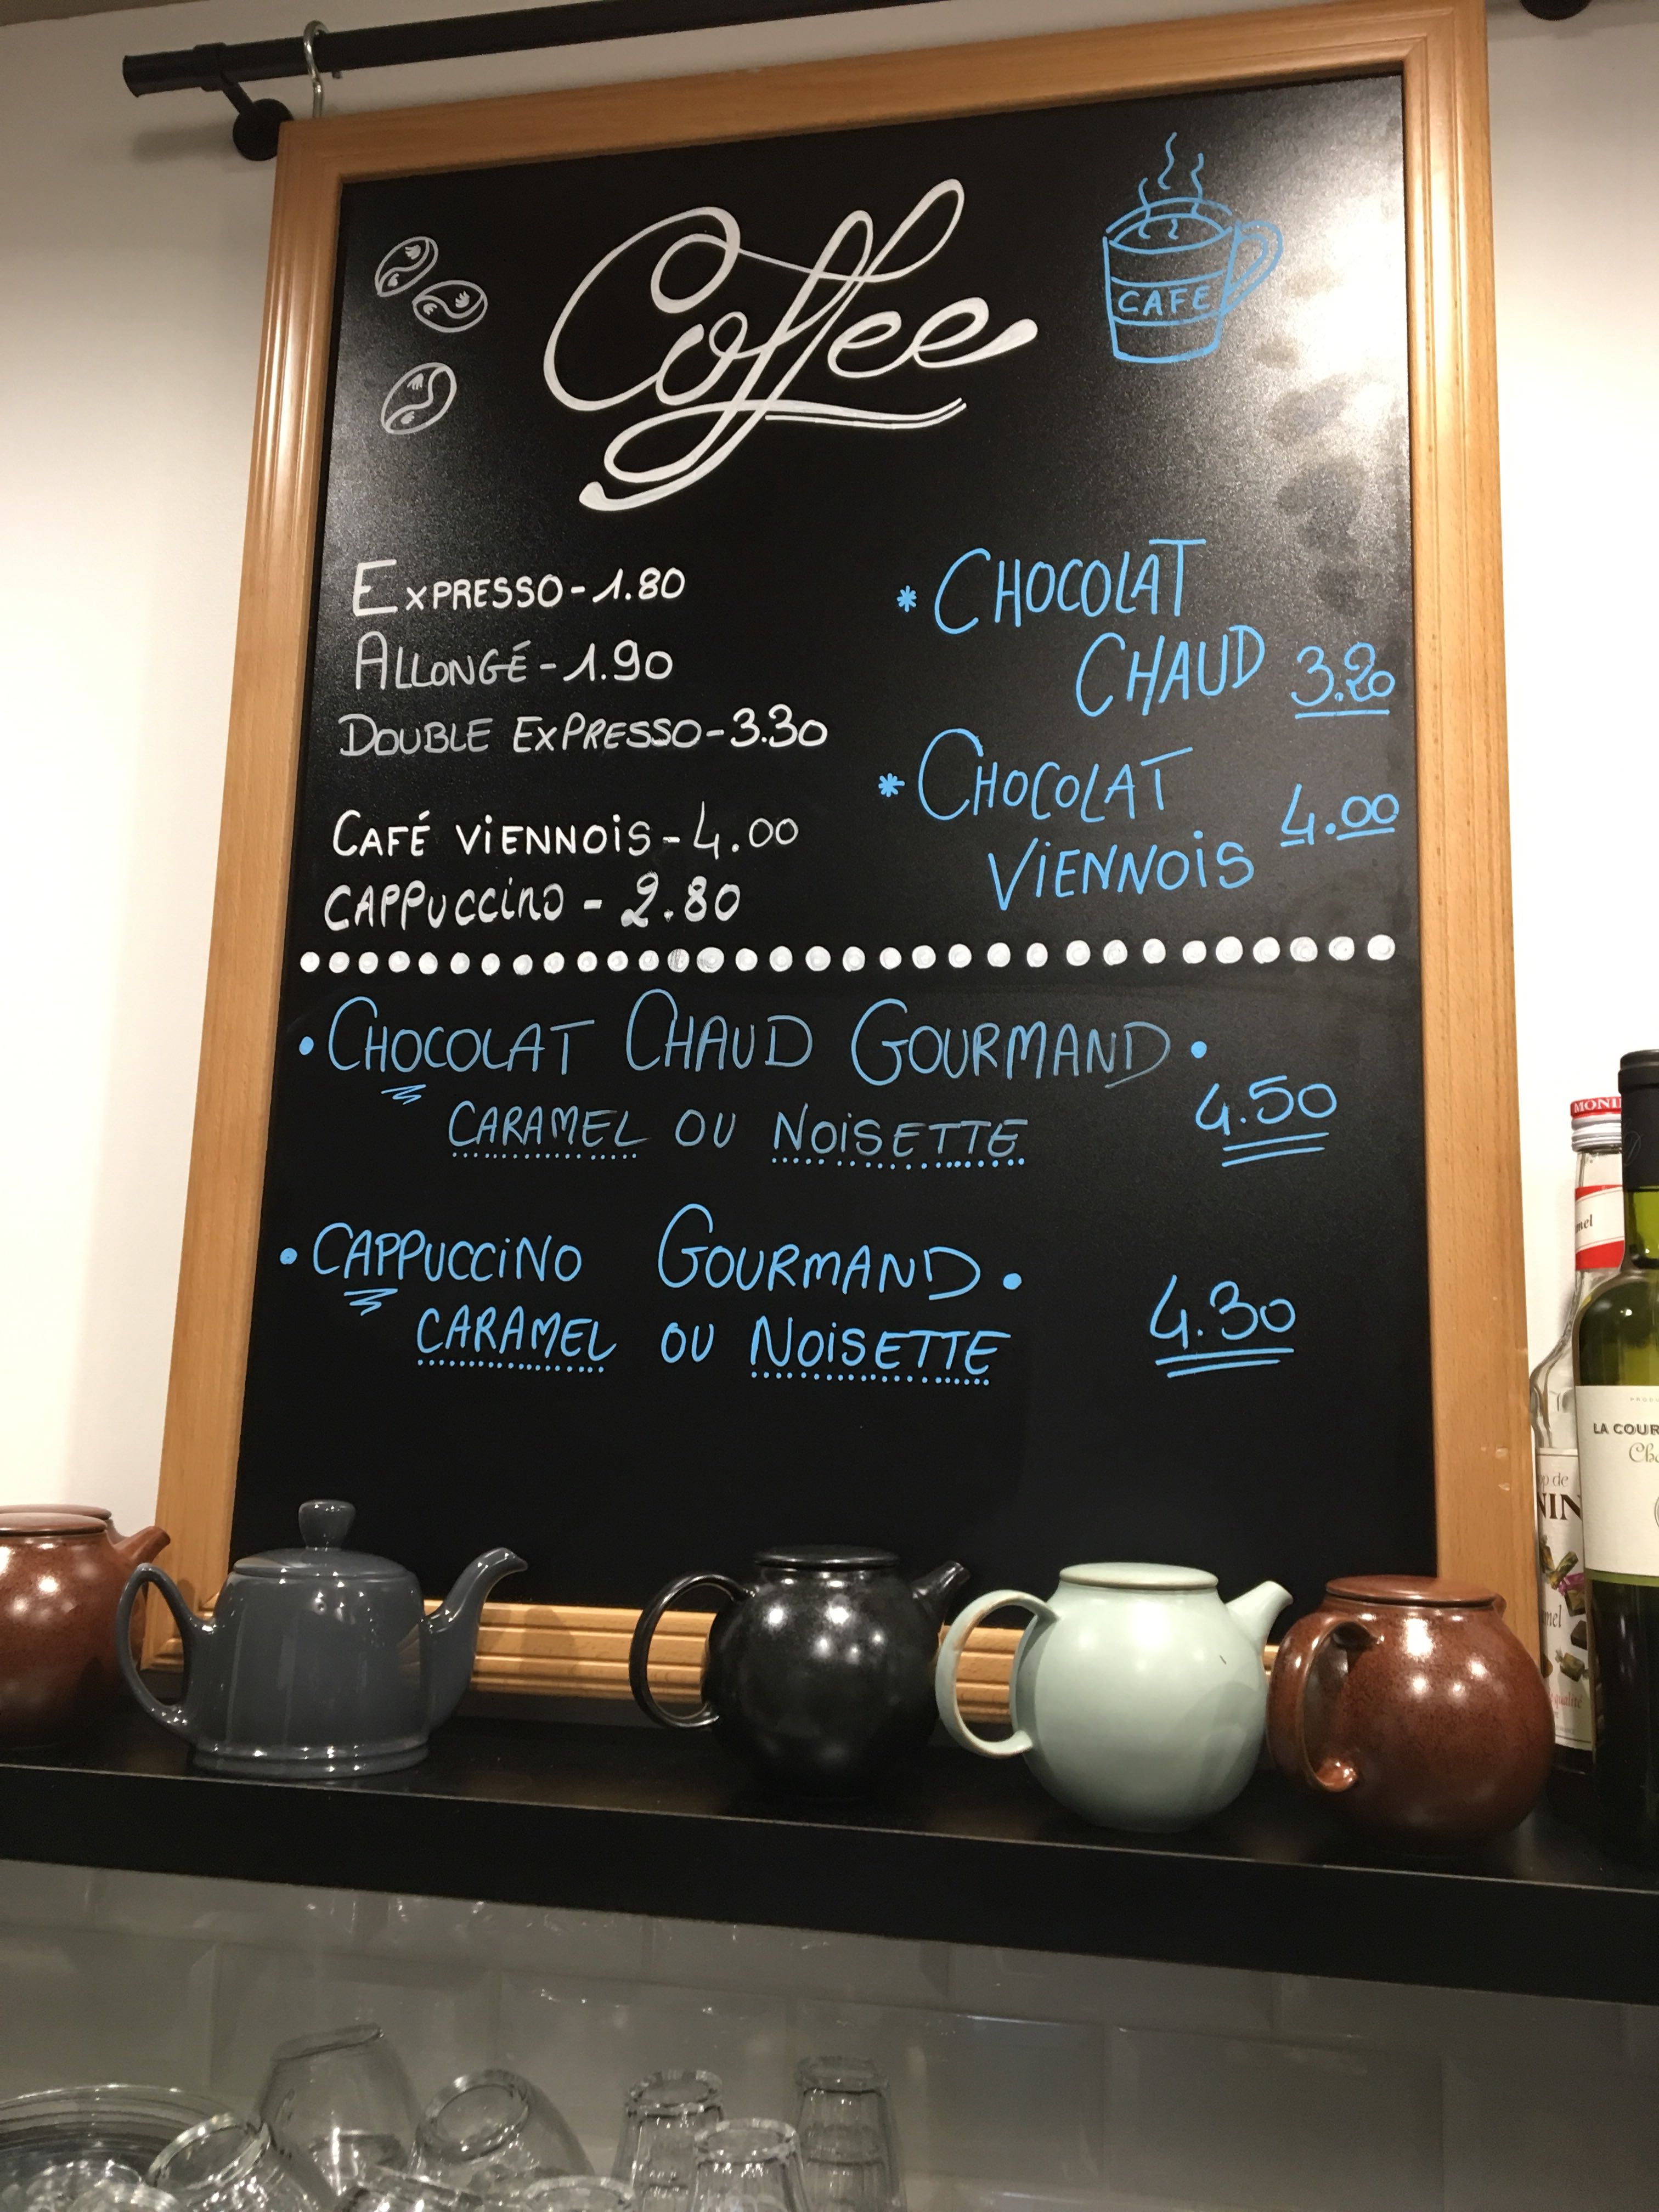 Coffee
CAFE
EXPRESSO-1.80
ALLONGÉ-1.90
DOUBLE EXPRESSO-3.30
CAFÉ VIENNOIS-4.00
CAPPUCCINO - 2.80
* CHOCOLAT
CHAUD 3.20
* CHOCOLAT
VIENNOIS 4.00
• CHOCOLAT CHAUD GOURMAND •
CARAMEL OU NOISETTE 4.50
• CAPPUCCINO GOURMAND •
CARAMEL OU NOISETTE 4.30
MONI
LA COUR